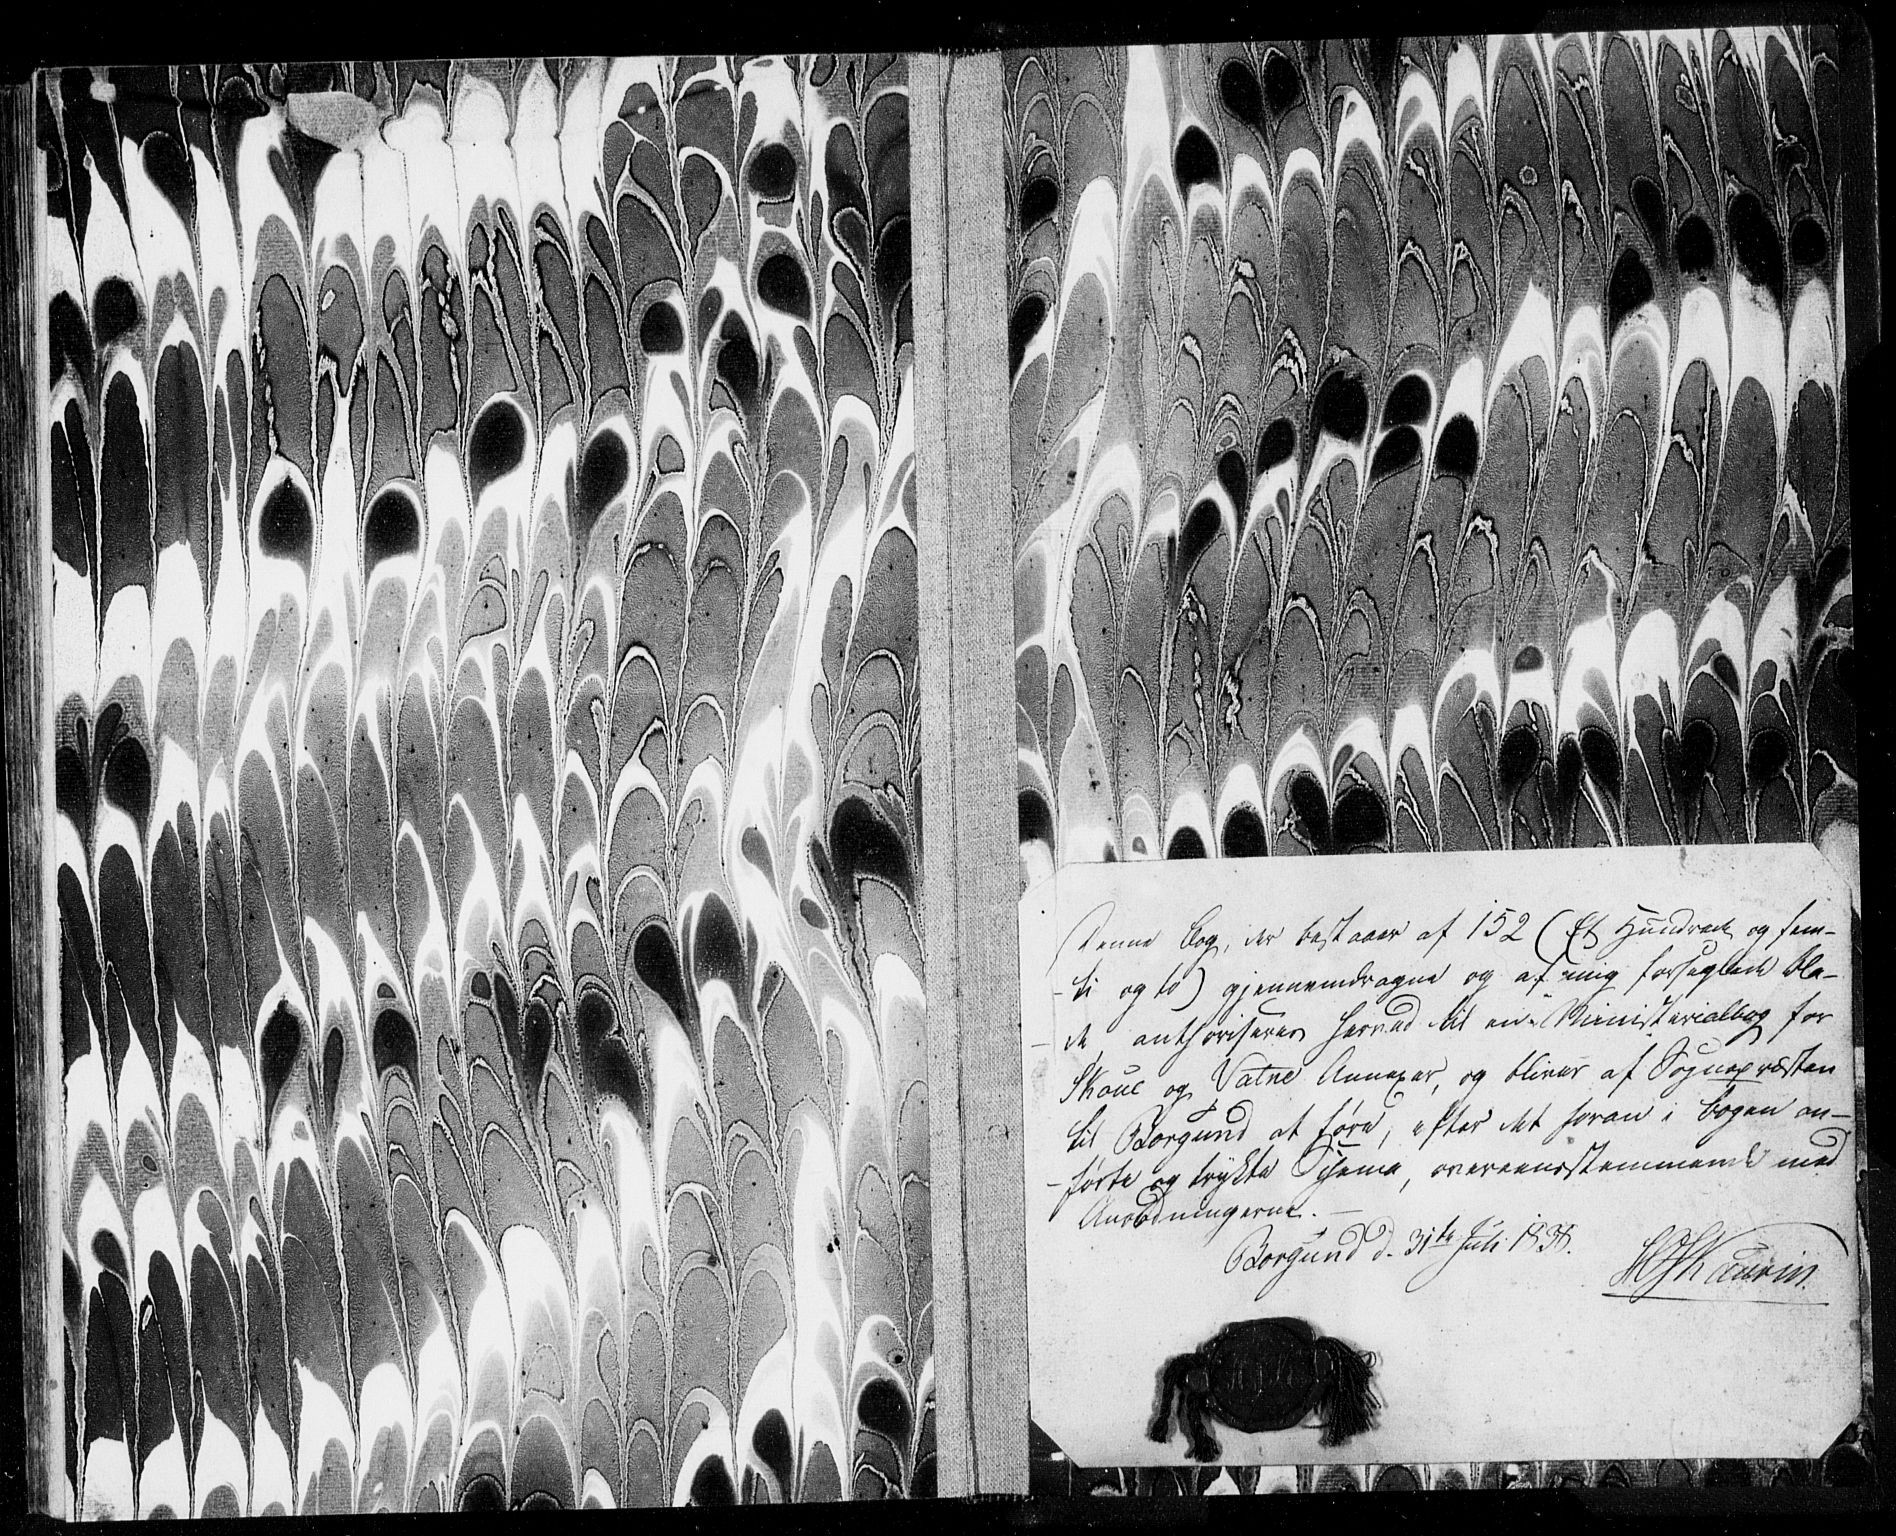 Denne Bog, der bestaaer af 152 (Et Hundrede og fem-
-ti og to) gjennemdragne og af mig forseglede Bla-
-de authoriseres herved til en Ministerialbog for
Skoue og Vatne Annexer, og bliver af Sognepræsten
til Borgund at føre, efter det foran i Bogen an-
-førte og trykte Schema, overeensstemmende med
Anordningerne. —
Borgund d. 31te Juli 1838.